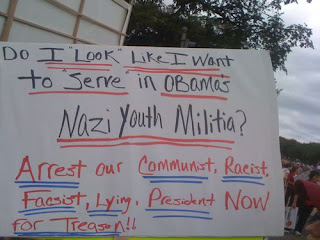 Do I "Look" Like I Want
to "Serve" in OBama's
Nazi Youth Militia?
Arrest our Communist, Racist,
Facsist, Lying, President NOW
for Treason!!